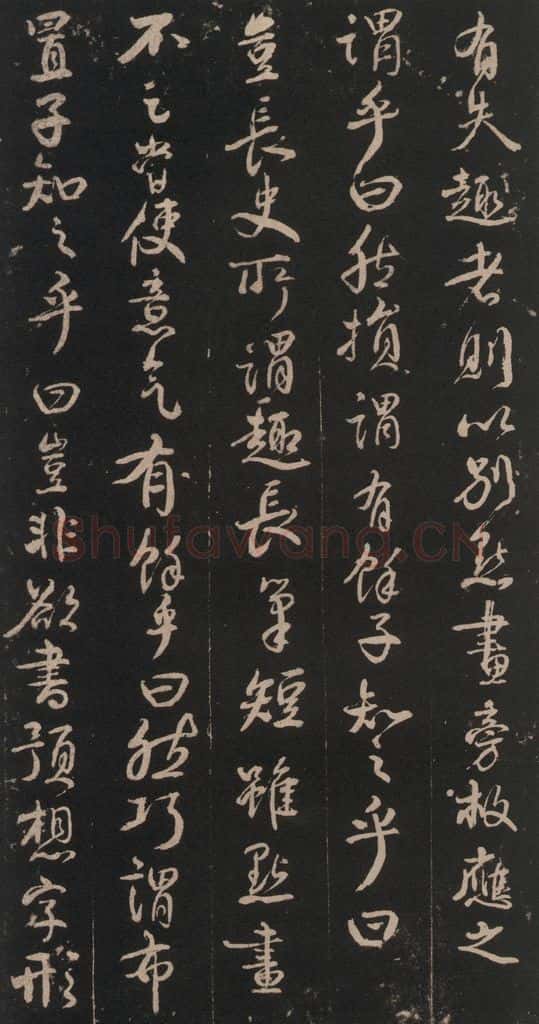 有失趣者則以別點畫旁救應之
謂乎曰然損謂有餘子知之乎曰
豈長史所謂趣長筆短雖點畫
不足常使意气有餘乎曰然巧謂布
置子知之乎曰豈非欲書預想字形
Shufawang.CN